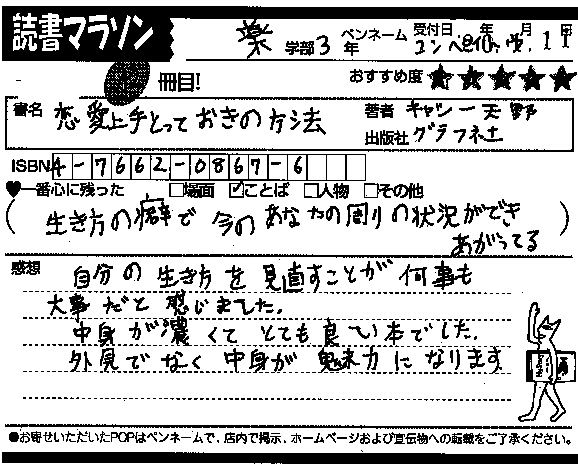 読書マラソン
薬 学部 3 年 ペンネーム 受付日 年 月 日
冊目!
おすすめ度 ★★★★★
書名 恋愛上手とっておきの方法
著者 キャシー天野
出版社 グラフ社
ISBN 4-7662-0867-6
♥一番心に残った □場面 ☑ことば □人物 □その他
(生き方の癖で今のあなたの周りの状況ができ
あがってる)
感想 自分の生き方を見直すことが何事も
大事だと感じました。
中身が濃くてとても良い本でした。
外見でなく中身が魅力になります
●お寄せいただいたPOPはペンネームで、店内で掲示、ホームページおよび宣伝物への転載をご了承ください。